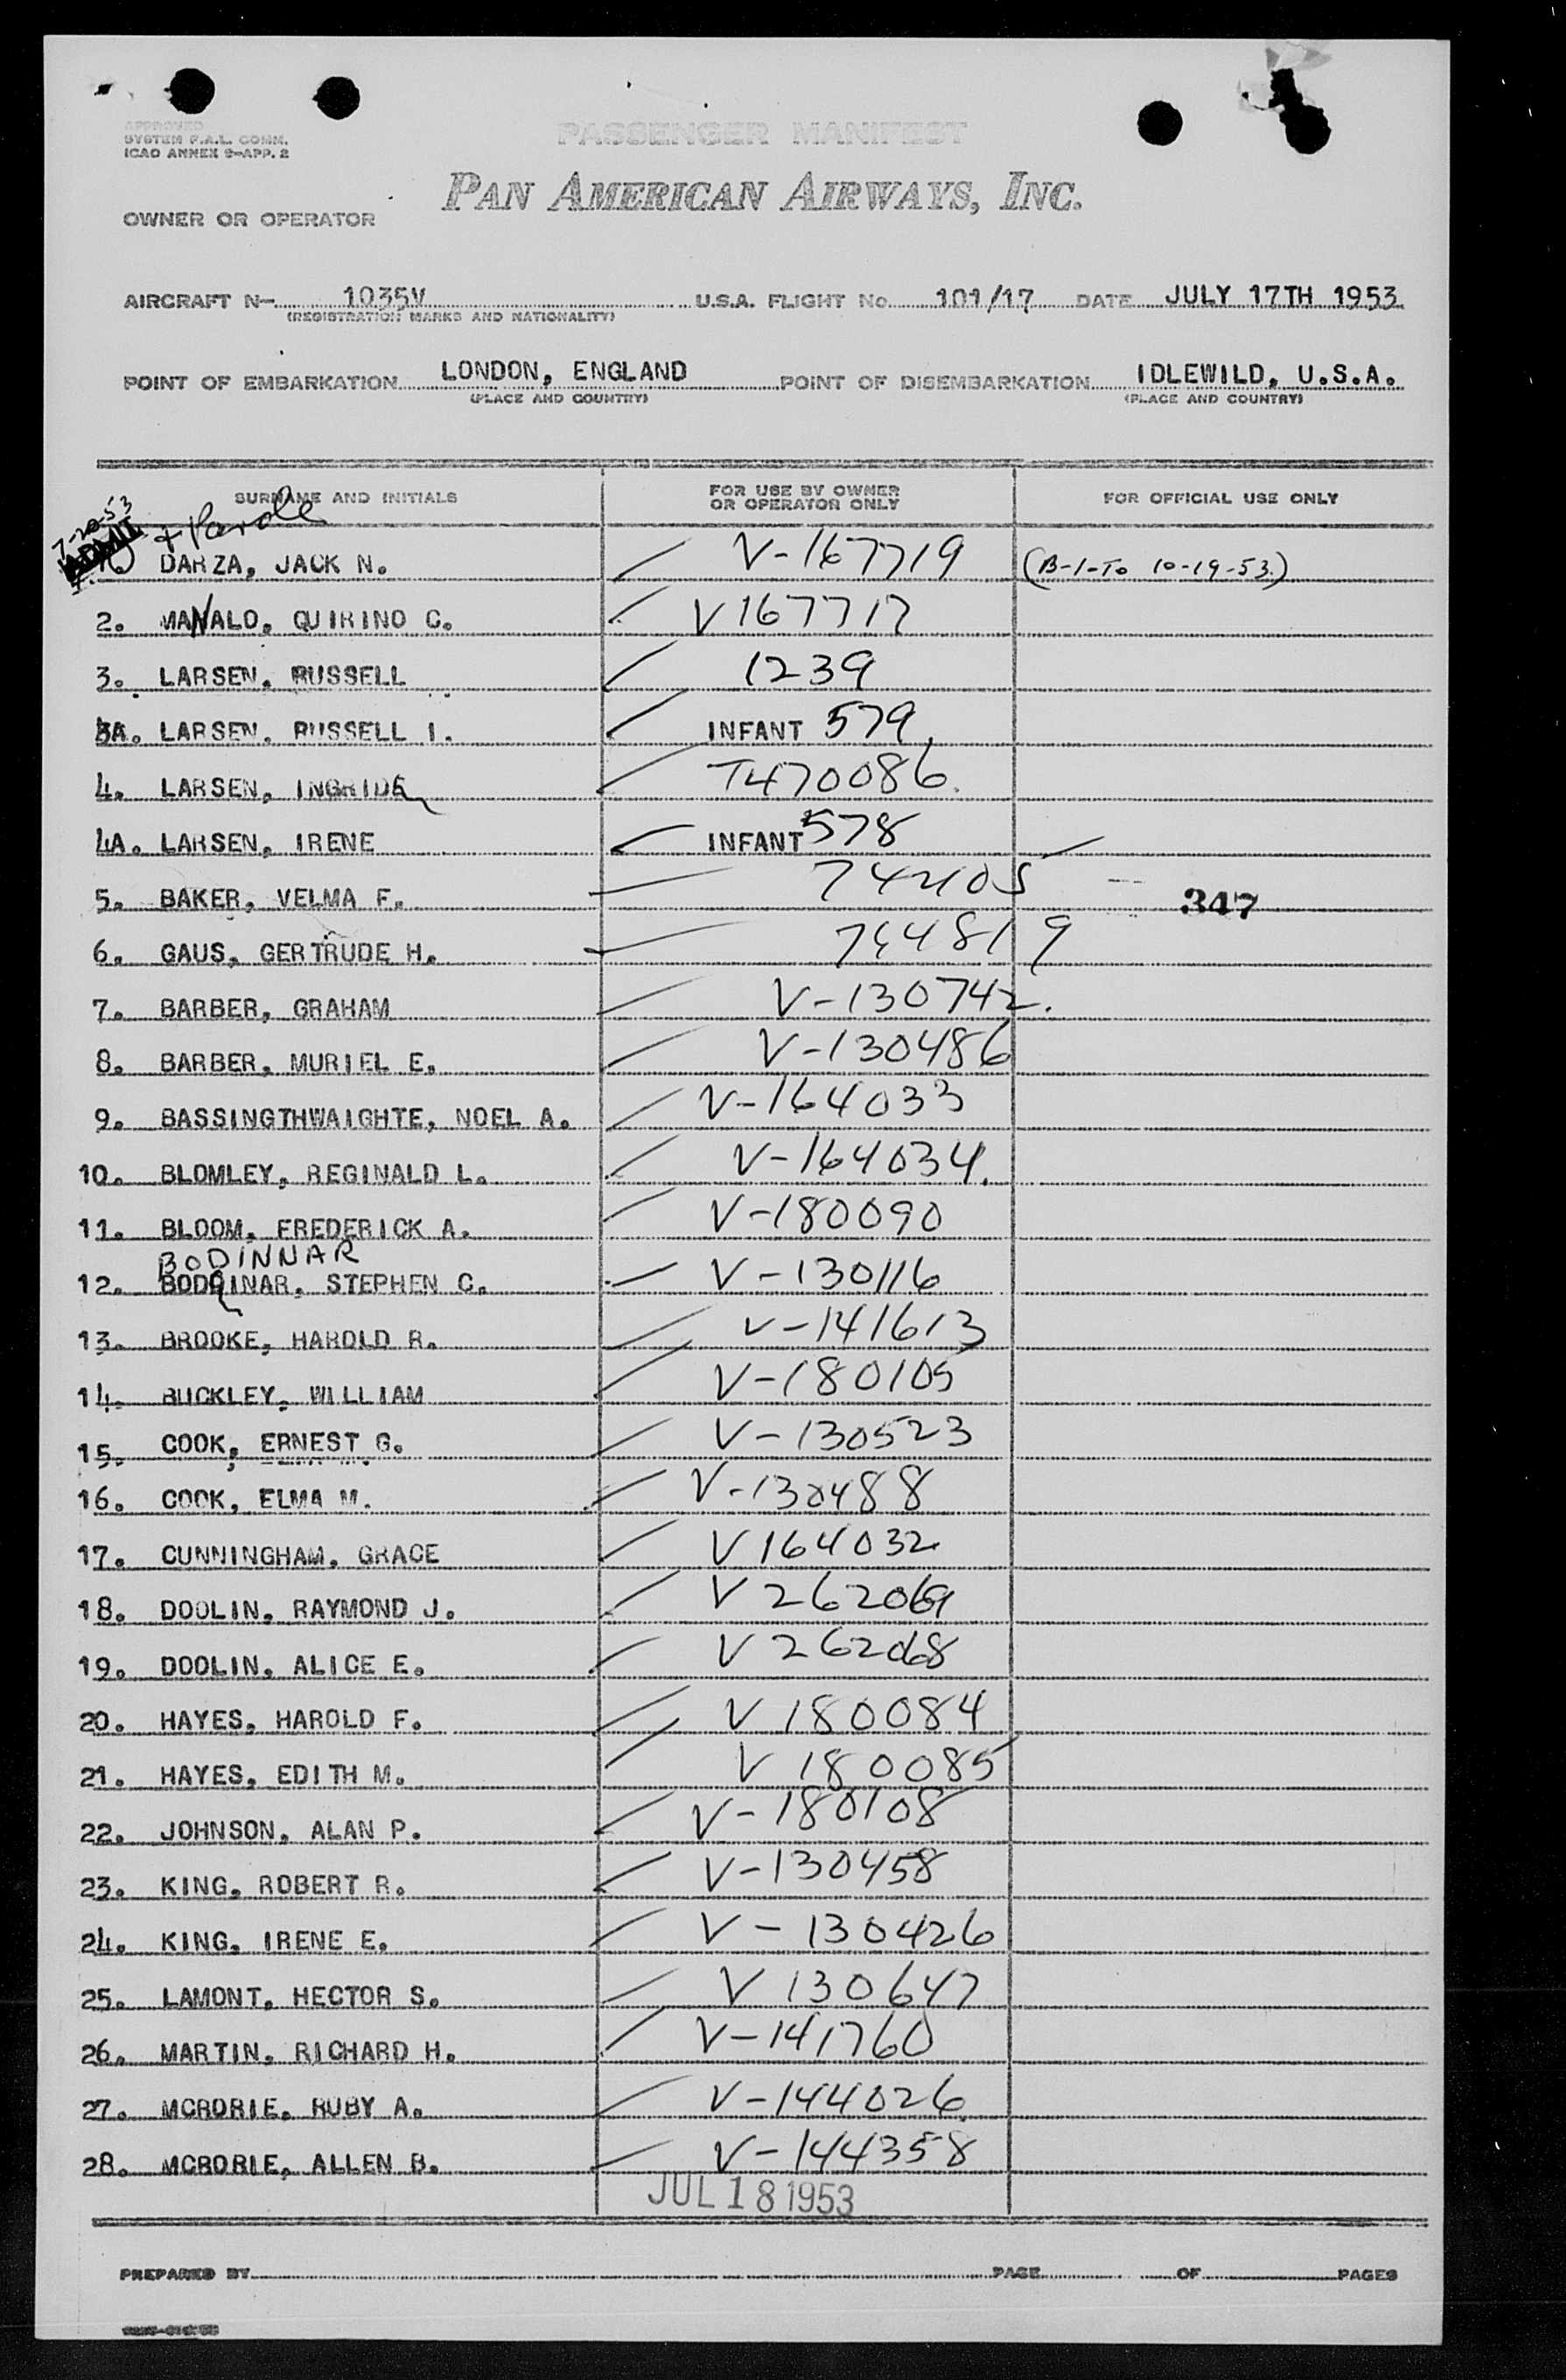 APPROVED
SYSTEM F.A.L. COMM.
ICAO ANNEX 9-APP. 2
PASSENGER MANIFEST
PAN AMERICAN AIRWAYS, INC.
OWNER OR OPERATOR
AIRCRAFT N- 1035V U.S.A. FLIGHT No. 101/17 DATE JULY 17TH 1953
(REGISTRATION MARKS AND NATIONALITY)
POINT OF EMBARKATION LONDON, ENGLAND POINT OF DISEMBARKATION IDLEWILD, U.S.A.
(PLACE AND COUNTRY) (PLACE AND COUNTRY)
SURNAME AND INITIALS FOR USE BY OWNER OR OPERATOR ONLY FOR OFFICIAL USE ONLY
7-20-53
ADMIT + Parole
DARZA, JACK N. V-167719 (B-1-To 10-19-53)
2. MANALO, QUIRINO C. V167717
3. LARSEN, RUSSELL 1239
3A. LARSEN, RUSSELL I. INFANT 579
4. LARSEN, INGRID T470086
4A. LARSEN, IRENE INFANT 578
5. BAKER, VELMA F. 742105 347
6. GAUS, GERTRUDE H.
7. BARBER, GRAHAM V-130742.
8. BARBER, MURIEL E. V-130486
9. BASSINGTHWAIGHTE, NOEL A. V-164033
10. BLOMLEY, REGINALD L. V-164034.
11. BLOOM, FREDERICK A. V-180090
BODINNAR
12. BODGINAR, STEPHEN C. V-130116
13. BROOKE, HAROLD R. V-141613
14. BUCKLEY, WILLIAM V-180105
15. COOK, ERNEST G. V-130523
16. COOK, ELMA M. V-130488
17. CUNNINGHAM, GRACE V164032
18. DOOLIN, RAYMOND J. V262069
19. DOOLIN, ALICE E. V262068
20. HAYES, HAROLD F. V180084
21. HAYES, EDITH M. V180085
22. JOHNSON, ALAN P. V-180108
23. KING, ROBERT R. V-130458
24. KING, IRENE E. V-130426
25. LAMONT, HECTOR S. V130647
26. MARTIN, RICHARD H. V-141760
27. MCRORIE, RUBY A. V-144026
28. MCRORIE, ALLEN B. V-144358
JUL 18 1953
PREPARED BY PAGE OF PAGES